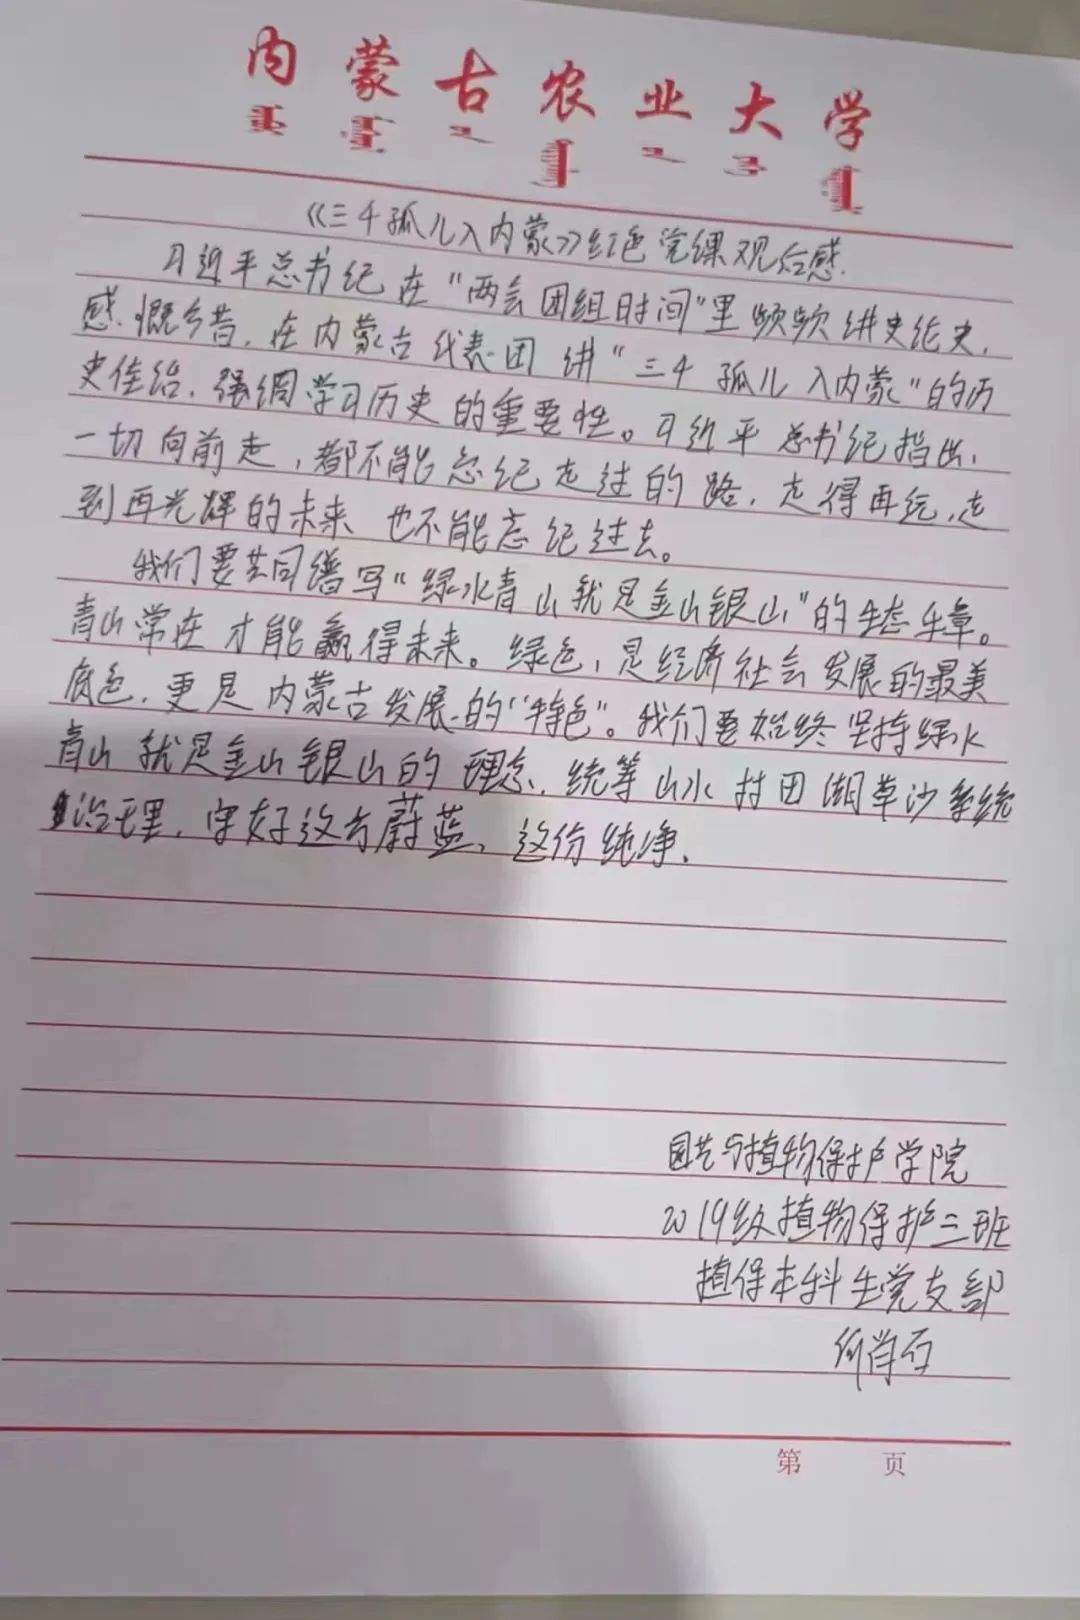 内蒙古农业大学
《三千孤儿入内蒙》红色党课观后感.
习近平总书记在"两会团组时间"里频频讲史论史,
感慨今昔,在内蒙古代表团讲"三千孤儿入内蒙"的历
史佳话,强调学习历史的重要性。习近平总书记指出,
一切向前走,都不能忘记走过的路,走得再远,走
到再光辉的未来也不能忘记过去。
我们要共同谱写"绿水青山就是金山银山"的生态华章。
青山常在才能赢得未来。绿色,是经济社会发展的最美
底色,更是内蒙古发展的"特色"。我们要始终坚持绿水
青山就是金山银山的理念,统筹山水林田湖草沙系统
治理,守好这方蔚蓝、这份纯净.
园艺与植物保护学院
2019级植物保护三班
植保本科生党支部
第 页